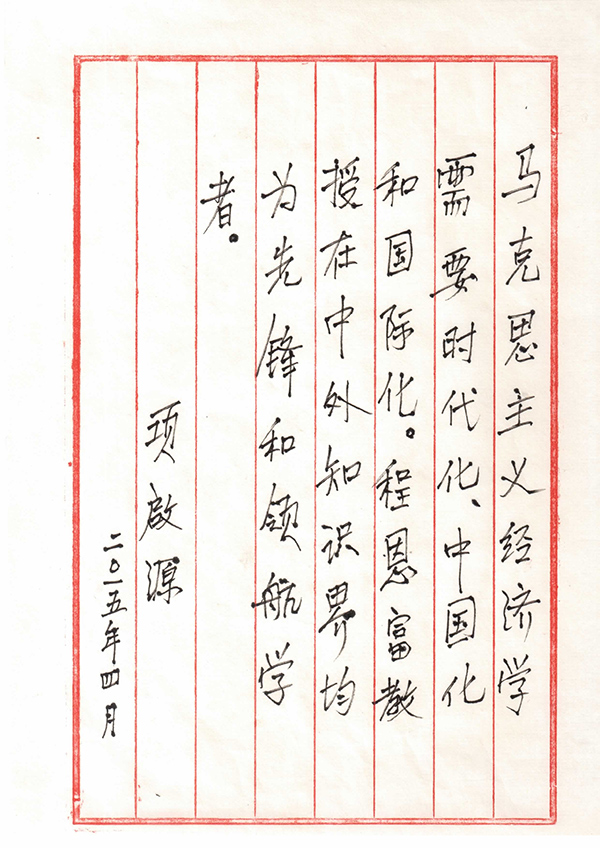 马克思主义经济学
需要时代化、中国化
和国际化。程恩富教
授在中外知识界均
为先锋和领航学
者。
项啟源
二〇一五年四月